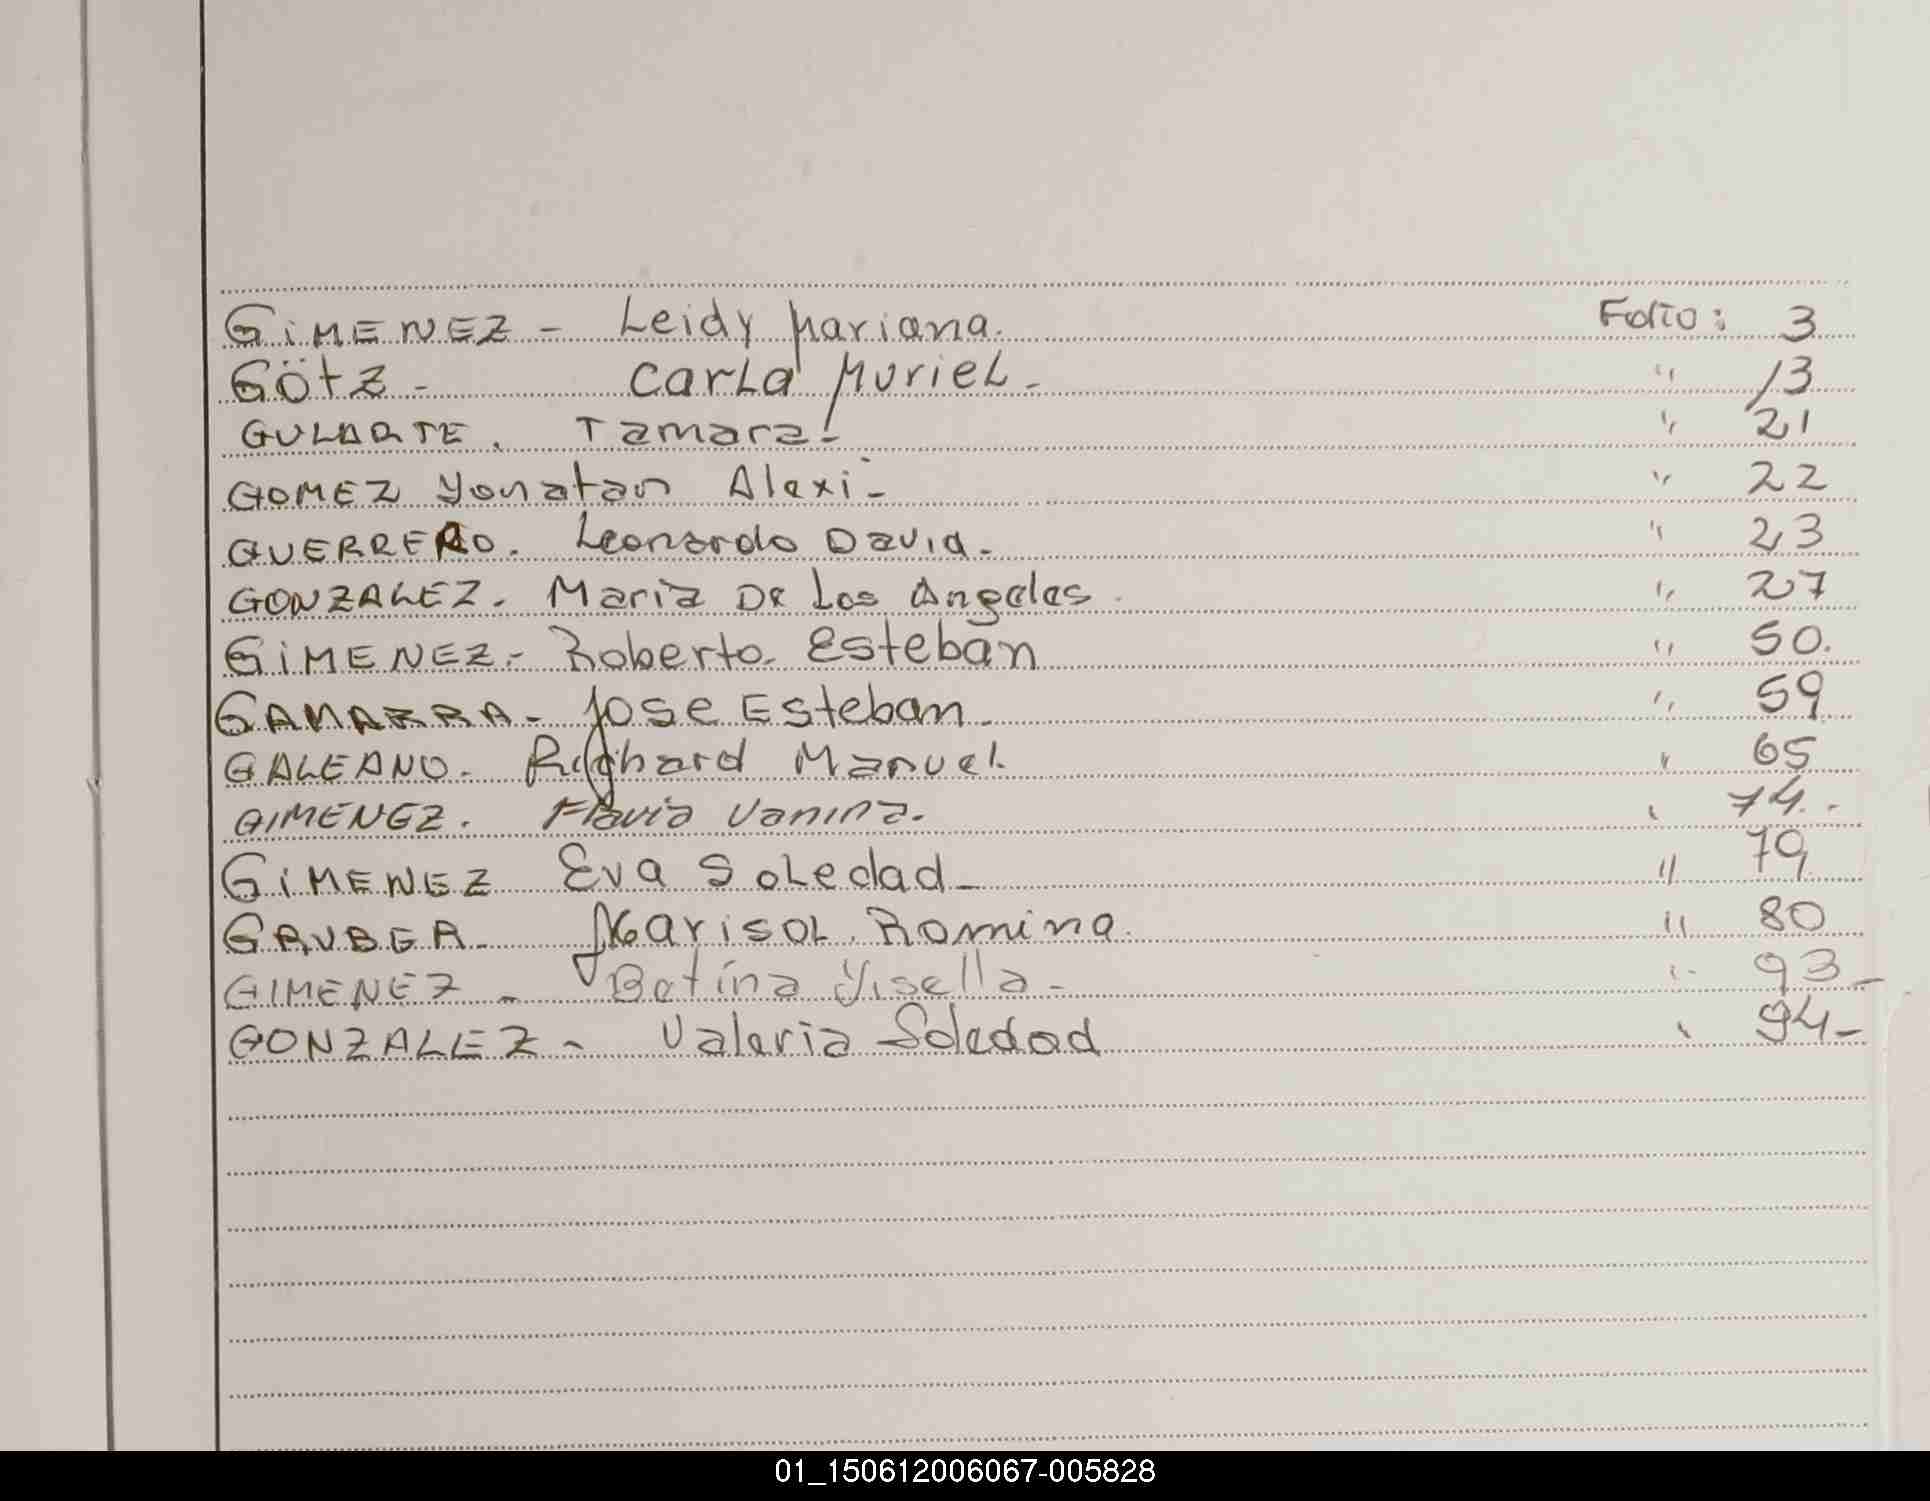 GIMENEZ - Leidy Mariana. Folio: 3
GÖtZ - CarLa MurieL - " 13
GULARTE. Tamara - " 21
GOMEZ Yonatan Alexi - " 22
GUERRERO. Leonardo David. " 23
GONZALEZ. Maria De Los Angeles. " 27
GIMENEZ.- Roberto. Esteban " 50.
GAMARRA - Jose Esteban. " 59
GALEANO. Richard Manuel. " 65
GIMENEZ. Flavia Vanina. " 74.-
GIMENEZ Eva SoLedad - " 79
GAUBER - MarisoL Romina. " 80
GIMENEZ - Betina Yisella - " 93 -
GONZALEZ - Valeria Soledad " 94 -
01_150612006067-005828